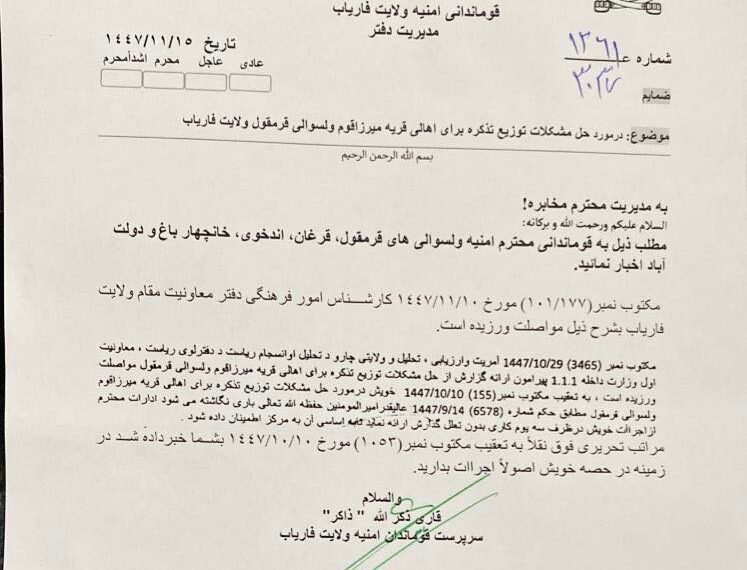 قوماندانی امنیه ولایت فاریاب
مدیریت دفتر
تاریخ ١٤٤٧/١١/١٥
عادی عاجل محرم اشدأمحرم
شماره ١٣٦١
٣٠٣٧
ضمایم
موضوع: درمورد حل مشکلات توزیع تذکره برای اهالی قریه میرزاقوم ولسوالی قرمقول ولایت فاریاب
بسم الله الرحمن الرحیم
به مدیریت محترم مخابره!
السلام علیکم ورحمت الله و برکاته:
مطلب ذیل به قوماندانی محترم امنیه ولسوالی های قرمقول، قرغان، اندخوی، خانچهار باغ و دولت
آباد اخبار نمائید.
مکتوب نمبر(١٠١/١٧٧) مورخ ١٤٤٧/١١/١٠ کارشناس امور فرهنگی دفتر معاونیت مقام ولایت
فاریاب بشرح ذیل مواصلت ورزیده است.
مکتوب نمبر (3465) 1447/10/29 آمریت وارزیابی ، تحلیل و ولایتی چارو د تحلیل اوانسجام ریاست د دفترلوی ریاست ، معاونیت
اول وزارت داخله 1.1.1 پیرامون ارائه گزارش از حل مشکلات توزیع تذکره برای اهالی قریه میرزاقوم ولسوالی قرمقول مواصلت
ورزیده است ، به تعقیب مکتوب نمبر(155) 1447/10/10 خویش درمورد حل مشکلات توزیع تذکره برای اهالی قریه میرزاقوم
ولسوالی قرمقول مطابق حکم شماره (6578) 1447/9/14 عالیقدرامیرالمومنین حفظه الله تعالی باری نگاشته می شود ادارات محترم
ازاجراآت خویش درظرف سه یوم کاری بدون تعلل گذارش ارائه نماید تابه اساسی آن به مرکز اطمینان داده شود .
مراتب تحریری فوق نقلاً به تعقیب مکتوب نمبر(١٠٥٣) مورخ ١٤٤٧/١٠/١٠ بشما خبرداده شد در
زمینه در حصه خویش اصولاً اجراات بدارید.
والسلام
قاری ذکر الله " ذاکر"
سرپرست قوماندان امنیه ولایت فاریاب